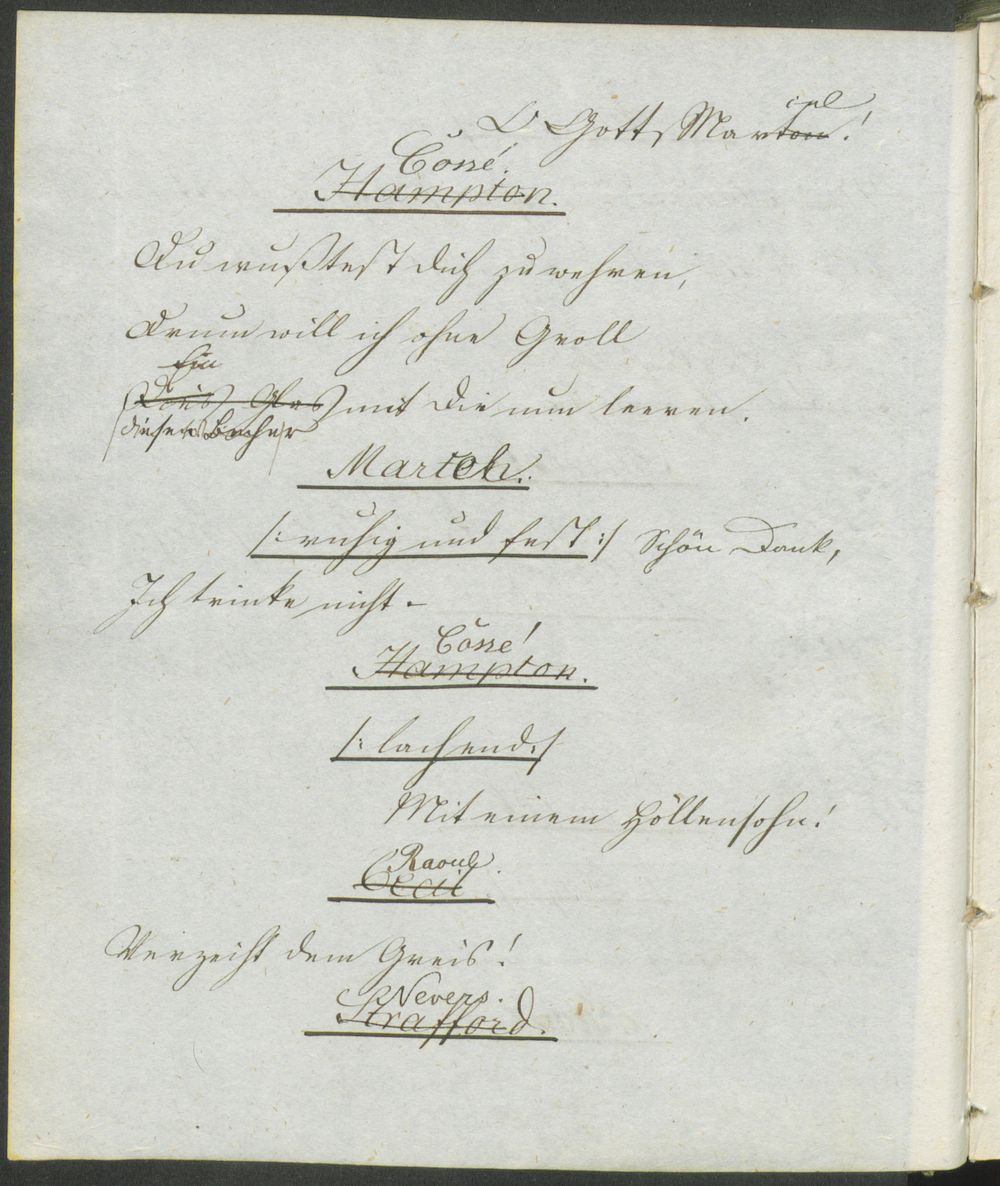 O Gott, Marton!
cel
Cossé.
Hampton.
Du wußtest dich zu wehren,
Drum will ich ohne Groll
Ein
Dies Glas mit Dir nun leeren.
diesen Becher
Marcel.
/: ruhig und fest :/ Schön Dank,
Ich trinke nicht.
Cossé
Hampton.
/: lachend :/
Mit einem Höllensohn!
Raoul.
Cecil
Verzeiht dem Greis!
Nevers.
Strafford.